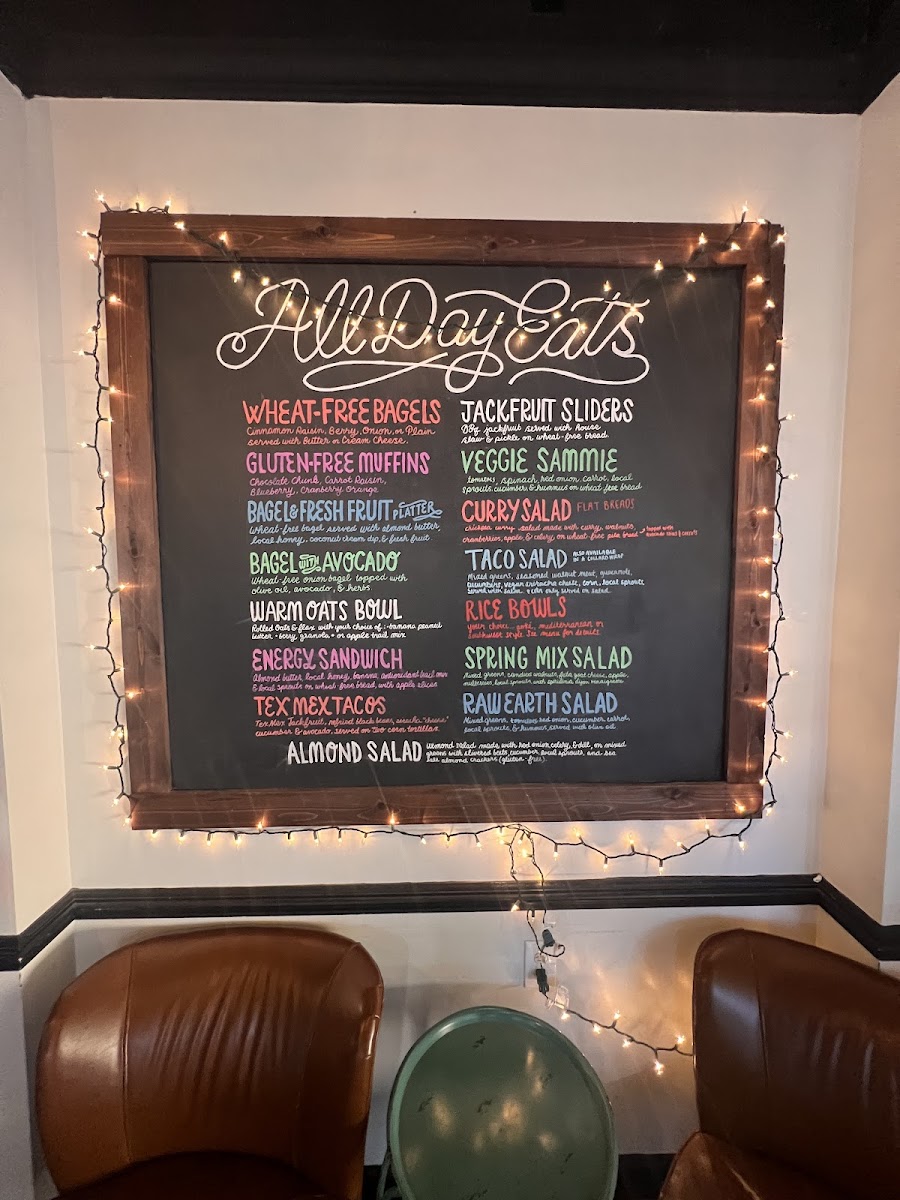 All Day Eats
WHEAT-FREE BAGELS
Cinnamon Raisin, Berry, Onion, or Plain
served with Butter or Cream Cheese.
GLUTEN-FREE MUFFINS
Chocolate Chunk, Carrot Raisin,
Blueberry, Cranberry Orange
BAGEL & FRESH FRUIT PLATTER
Wheat-free bagel served with almond butter,
local honey, coconut cream dip, & fresh fruit
BAGEL WITH AVOCADO
Wheat-free onion bagel topped with
olive oil, avocado, & herbs.
WARM OATS BOWL
Rolled Oats & flax with your choice of: banana peanut
butter • berry granola • or apple trail mix
ENERGY SANDWICH
Almond butter, local honey, banana, antioxidant trail mix
& local sprouts on wheat-free bread, with apple slices
TEX MEX TACOS
Tex Mex Jackfruit, refried black beans, "cheese"
cucumber & avocado, served on two corn tortillas
JACKFRUIT SLIDERS
BBQ jackfruit served with house
slaw & pickle on wheat-free bread.
VEGGIE SAMMIE
tomatoes, spinach, red onion, carrot, local
sprouts, cucumber & hummus on wheat free bread
CURRY SALAD FLAT BREADS
chickpea curry salad made with curry, walnuts,
cranberries, apple, & celery, on wheat-free pita bread
TACO SALAD ALSO AVAILABLE
IN A COLLARD WRAP
Mixed greens, seasoned walnut meat, guacamole,
cucumbers, vegan sriracha cheese, corn, local sprouts
served with salsa.
RICE BOWLS
your choice... poké, mediterranean or
southwest style. See menu for details.
SPRING MIX SALAD
Mixed greens, candied walnuts, feta goat cheese, apple,
RAW EARTH SALAD
Mixed greens, tomatoes, red onion, cucumber, carrot,
local sprouts, & hummus, served with olive oil
ALMOND SALAD
Almond salad made with red onion, celery, & dill, on mixed
greens with slivered beets, cucumber, local sprouts, and sea
salt almond crackers (gluten-free).